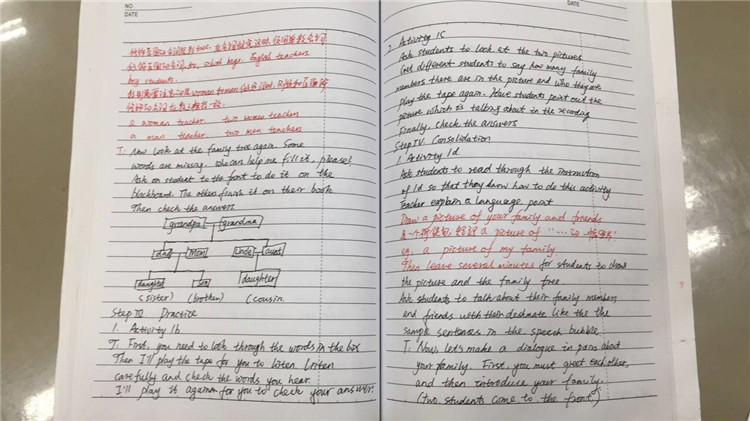 NO.
DATE
boy students.
a woman teacher two women teachers
a man teacher two men teachers
T: Now look at the family tree again. Some
words are missing. Who can help me fill it, please?
Ask on student to the font to do it on the
blackboard. The others finish it on their book
Then check the answers
grandpa grandma
dad Mom Uncle Aunt
daughter Son daughter
(sister) (brother) (cousin
Step III Practice
1. Activity 1b
T: First, you need to look through the words in the box
Then I'll play the tape for you to listen. Listen
carefully and check the words you hear.
I'll play it again for you to check your answer.
NO.
DATE
2 Activity 1C
Ask students to look at the two pictures
Get different students to say how many family
members there are in the picture and who they are
play the tape again. Have students point out the
picture which is talking about in the recording
Finally, check the answers
Step IV Consolidation
1 Activity 1d
Ask students to read through the instruction
of 1d so that they know how to do this activity
Teacher explain a language point
Draw a picture of your family and friends
a picture of
eg. a picture of my family.
Then leave several minutes for students to draw
the picture and the family tree.
Ask students to talk about their family members
and friends with their deskmate like the the
sample sentences in the speech bubble.
T: Now, let's make a dialogue in pairs about
your family. First, you must greet each other,
and then introduce your family.
(two students come to the front)